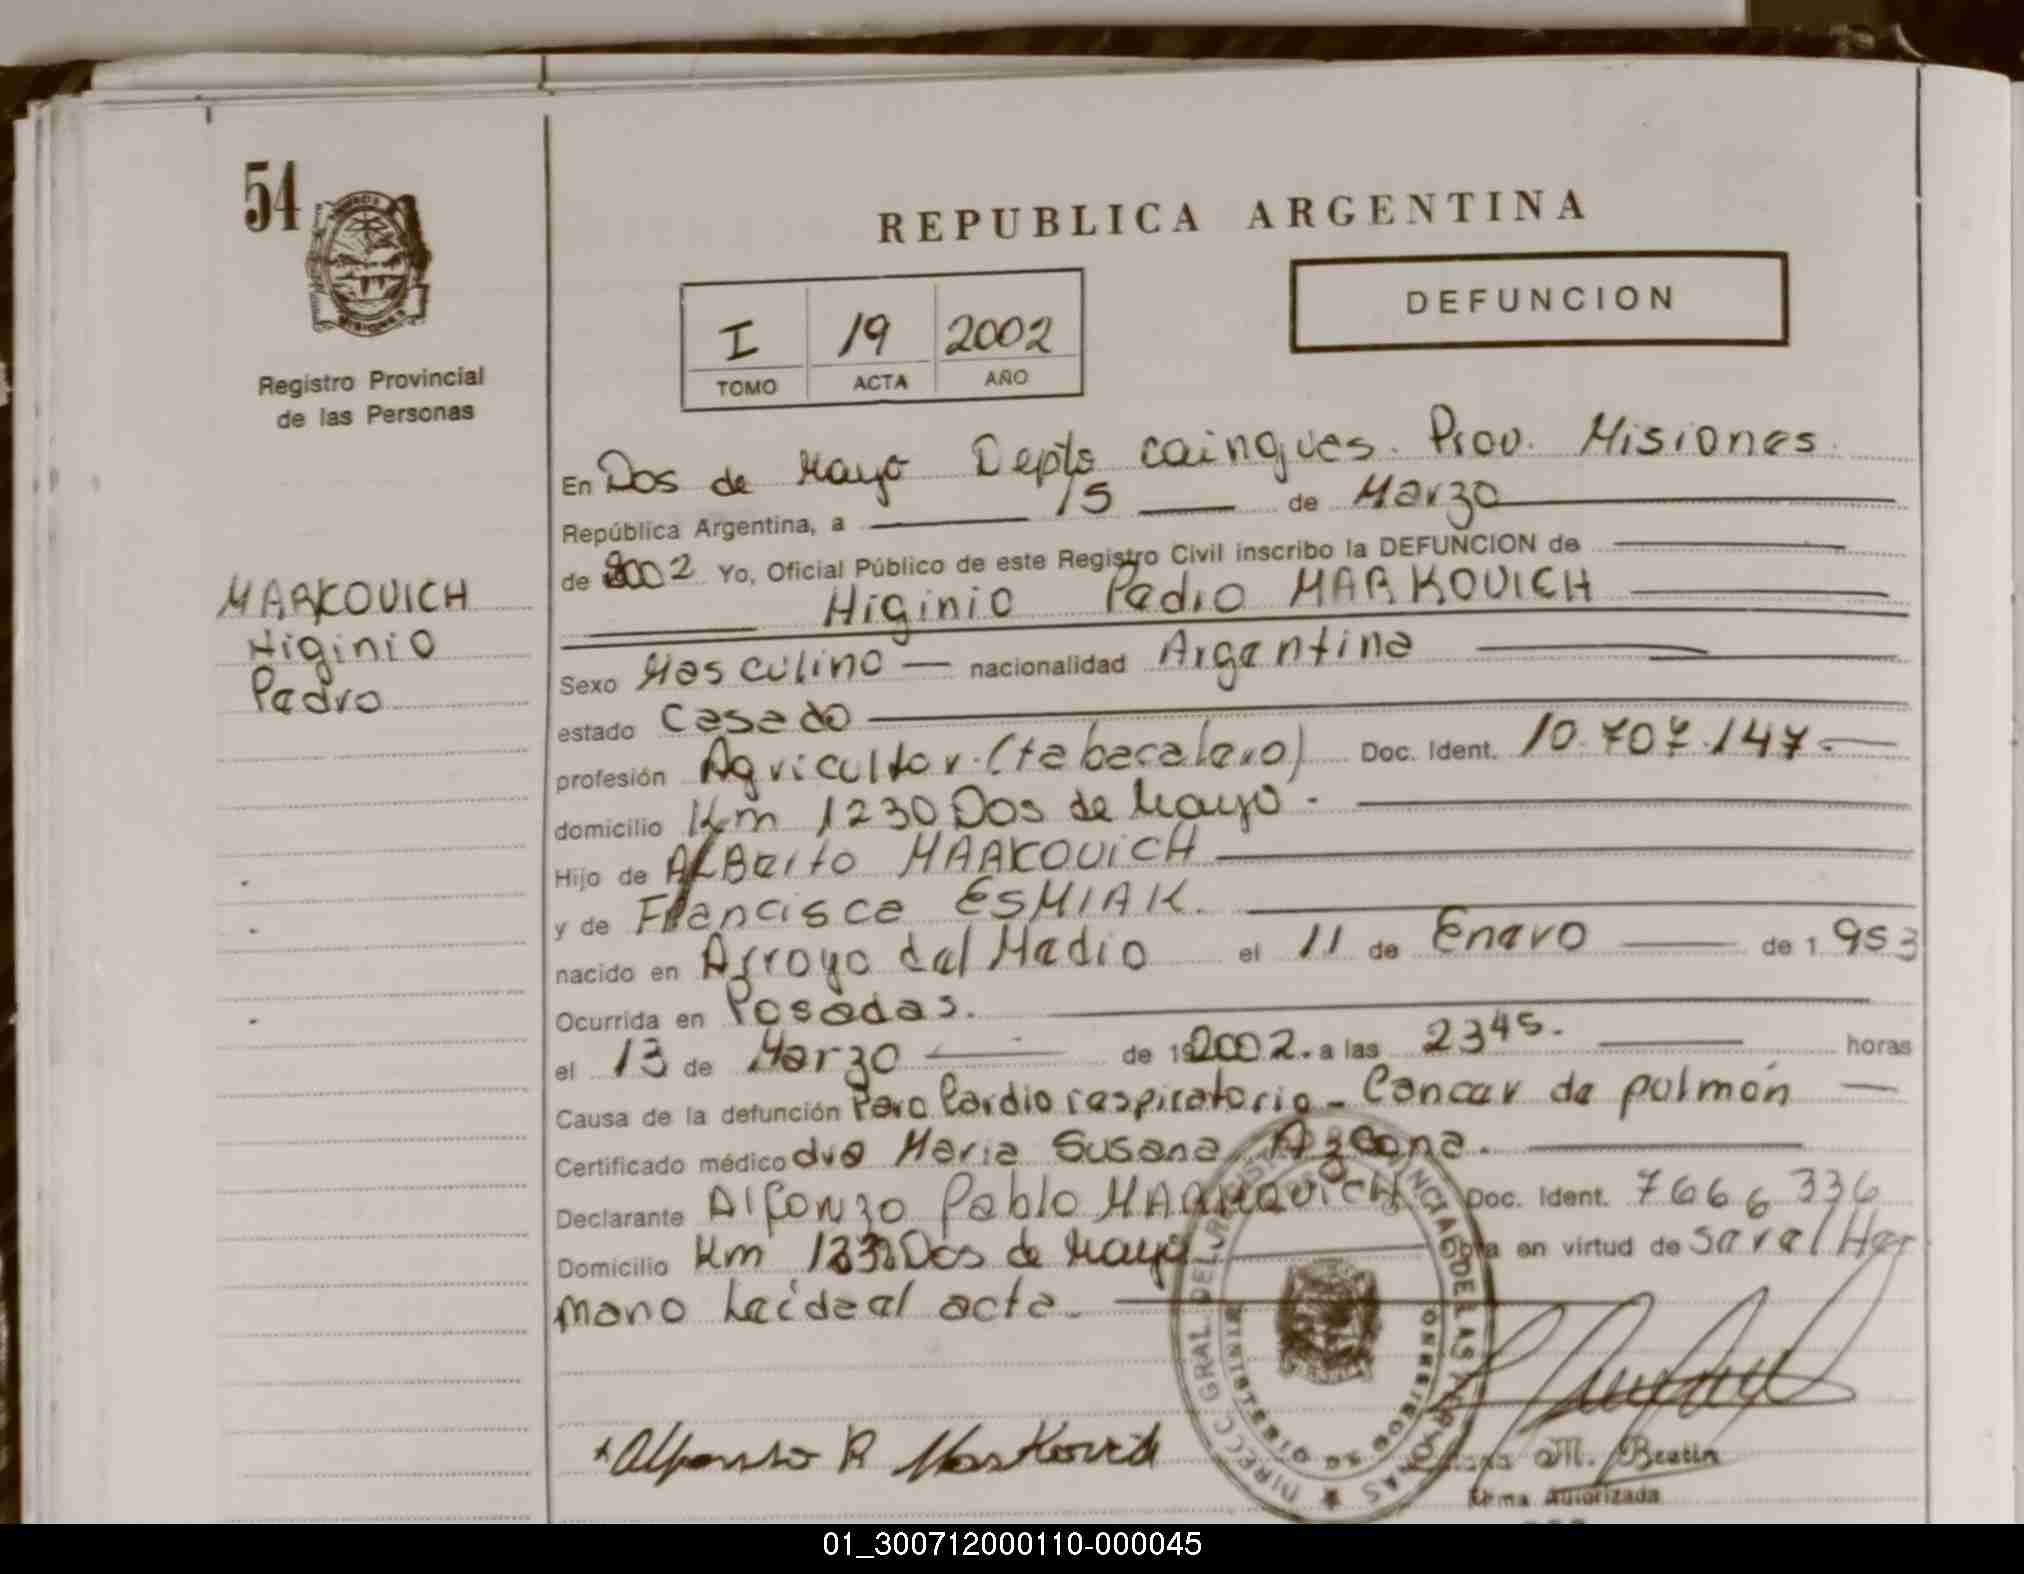 54
REPUBLICA ARGENTINA
DEFUNCION
I 19 2002
TOMO ACTA AÑO
Registro Provincial
de las Personas
MARKOVICH
Higinio
Pedro
En Dos de Mayo Depto caingues. Prov. Misiones.
República Argentina, a 15 de Marzo
de 2002 Yo, Oficial Público de este Registro Civil inscribo la DEFUNCION de
Higinio Pedro MARKOVICH
Sexo Masculino — nacionalidad Argentina
estado Casado
profesión Agricultor. (tabacalero) Doc. Ident. 10.707.147.-
domicilio Km 1230 Dos de Mayo.
Hijo de ALBerto MARKOVICH
y de Francisca ESMIAK.
nacido en Arroyo del Medio el 11 de Enero de 1953
Ocurrida en Posadas.
el 13 de Marzo de 2002. a las 23 45. horas
Causa de la defunción Paro Cardio respiratorio - Cancer de pulmón
Certificado médico dra Maria Susana Azcona.
Declarante Alfonzo Pablo MARKOVICH Doc. Ident. 7666336
Domicilio Km Dos de Mayo en virtud de Ser el Her
mano Leída el acta.
Alfonso P. Markovich
M. Beatin
Firma Autorizada
DIRECC. GRAL. DEL REGISTRO PROVINCIAL DE LAS PERSONAS
MINISTERIO DE GOBIERNO
MISIONES
01_300712000110-000045